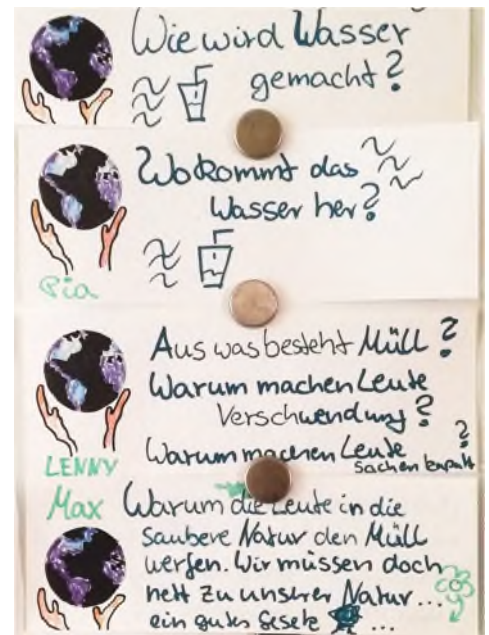 Wie wird Wasser
gemacht?
Wo kommt das
Wasser her?
Pia
Aus was besteht Müll?
Warum machen Leute
Verschwendung?
Warum machen Leute
sachen kaputt?
LENNY
Max
Warum die Leute in die
saubere Natur den Müll
werfen. Wir müssen doch
nett zu unserer Natur...
ein gutes Gesete ...